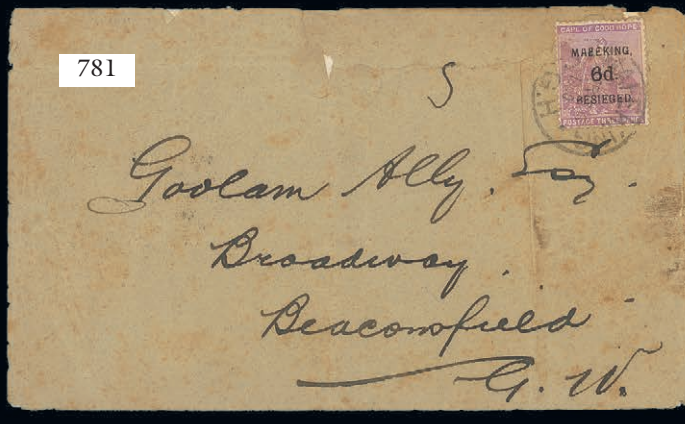 781
CAPE OF GOOD HOPE
MAFEKING,
6d.
BESIEGED.
S
Goolam Ally. Esq.
Broadway.
Beaconsfield
G. W.